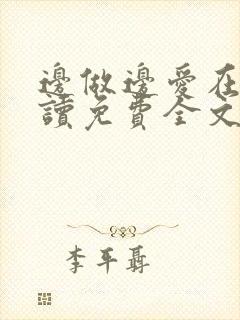 邊做邊愛在
讀免費全文
李平聶